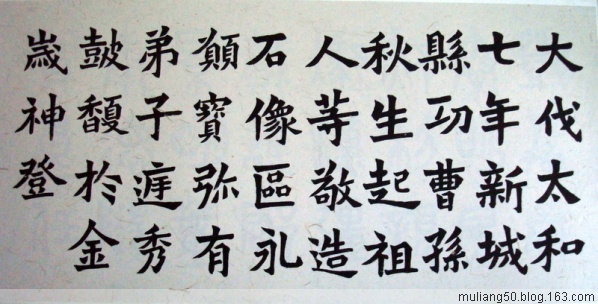 大伐太和
七年新城
縣功曹孫
秋生起祖
人等敬造
石像區永
願寶弥有
弟子庭秀
鼓馥於金
歲神登
muliang50.blog.163.com